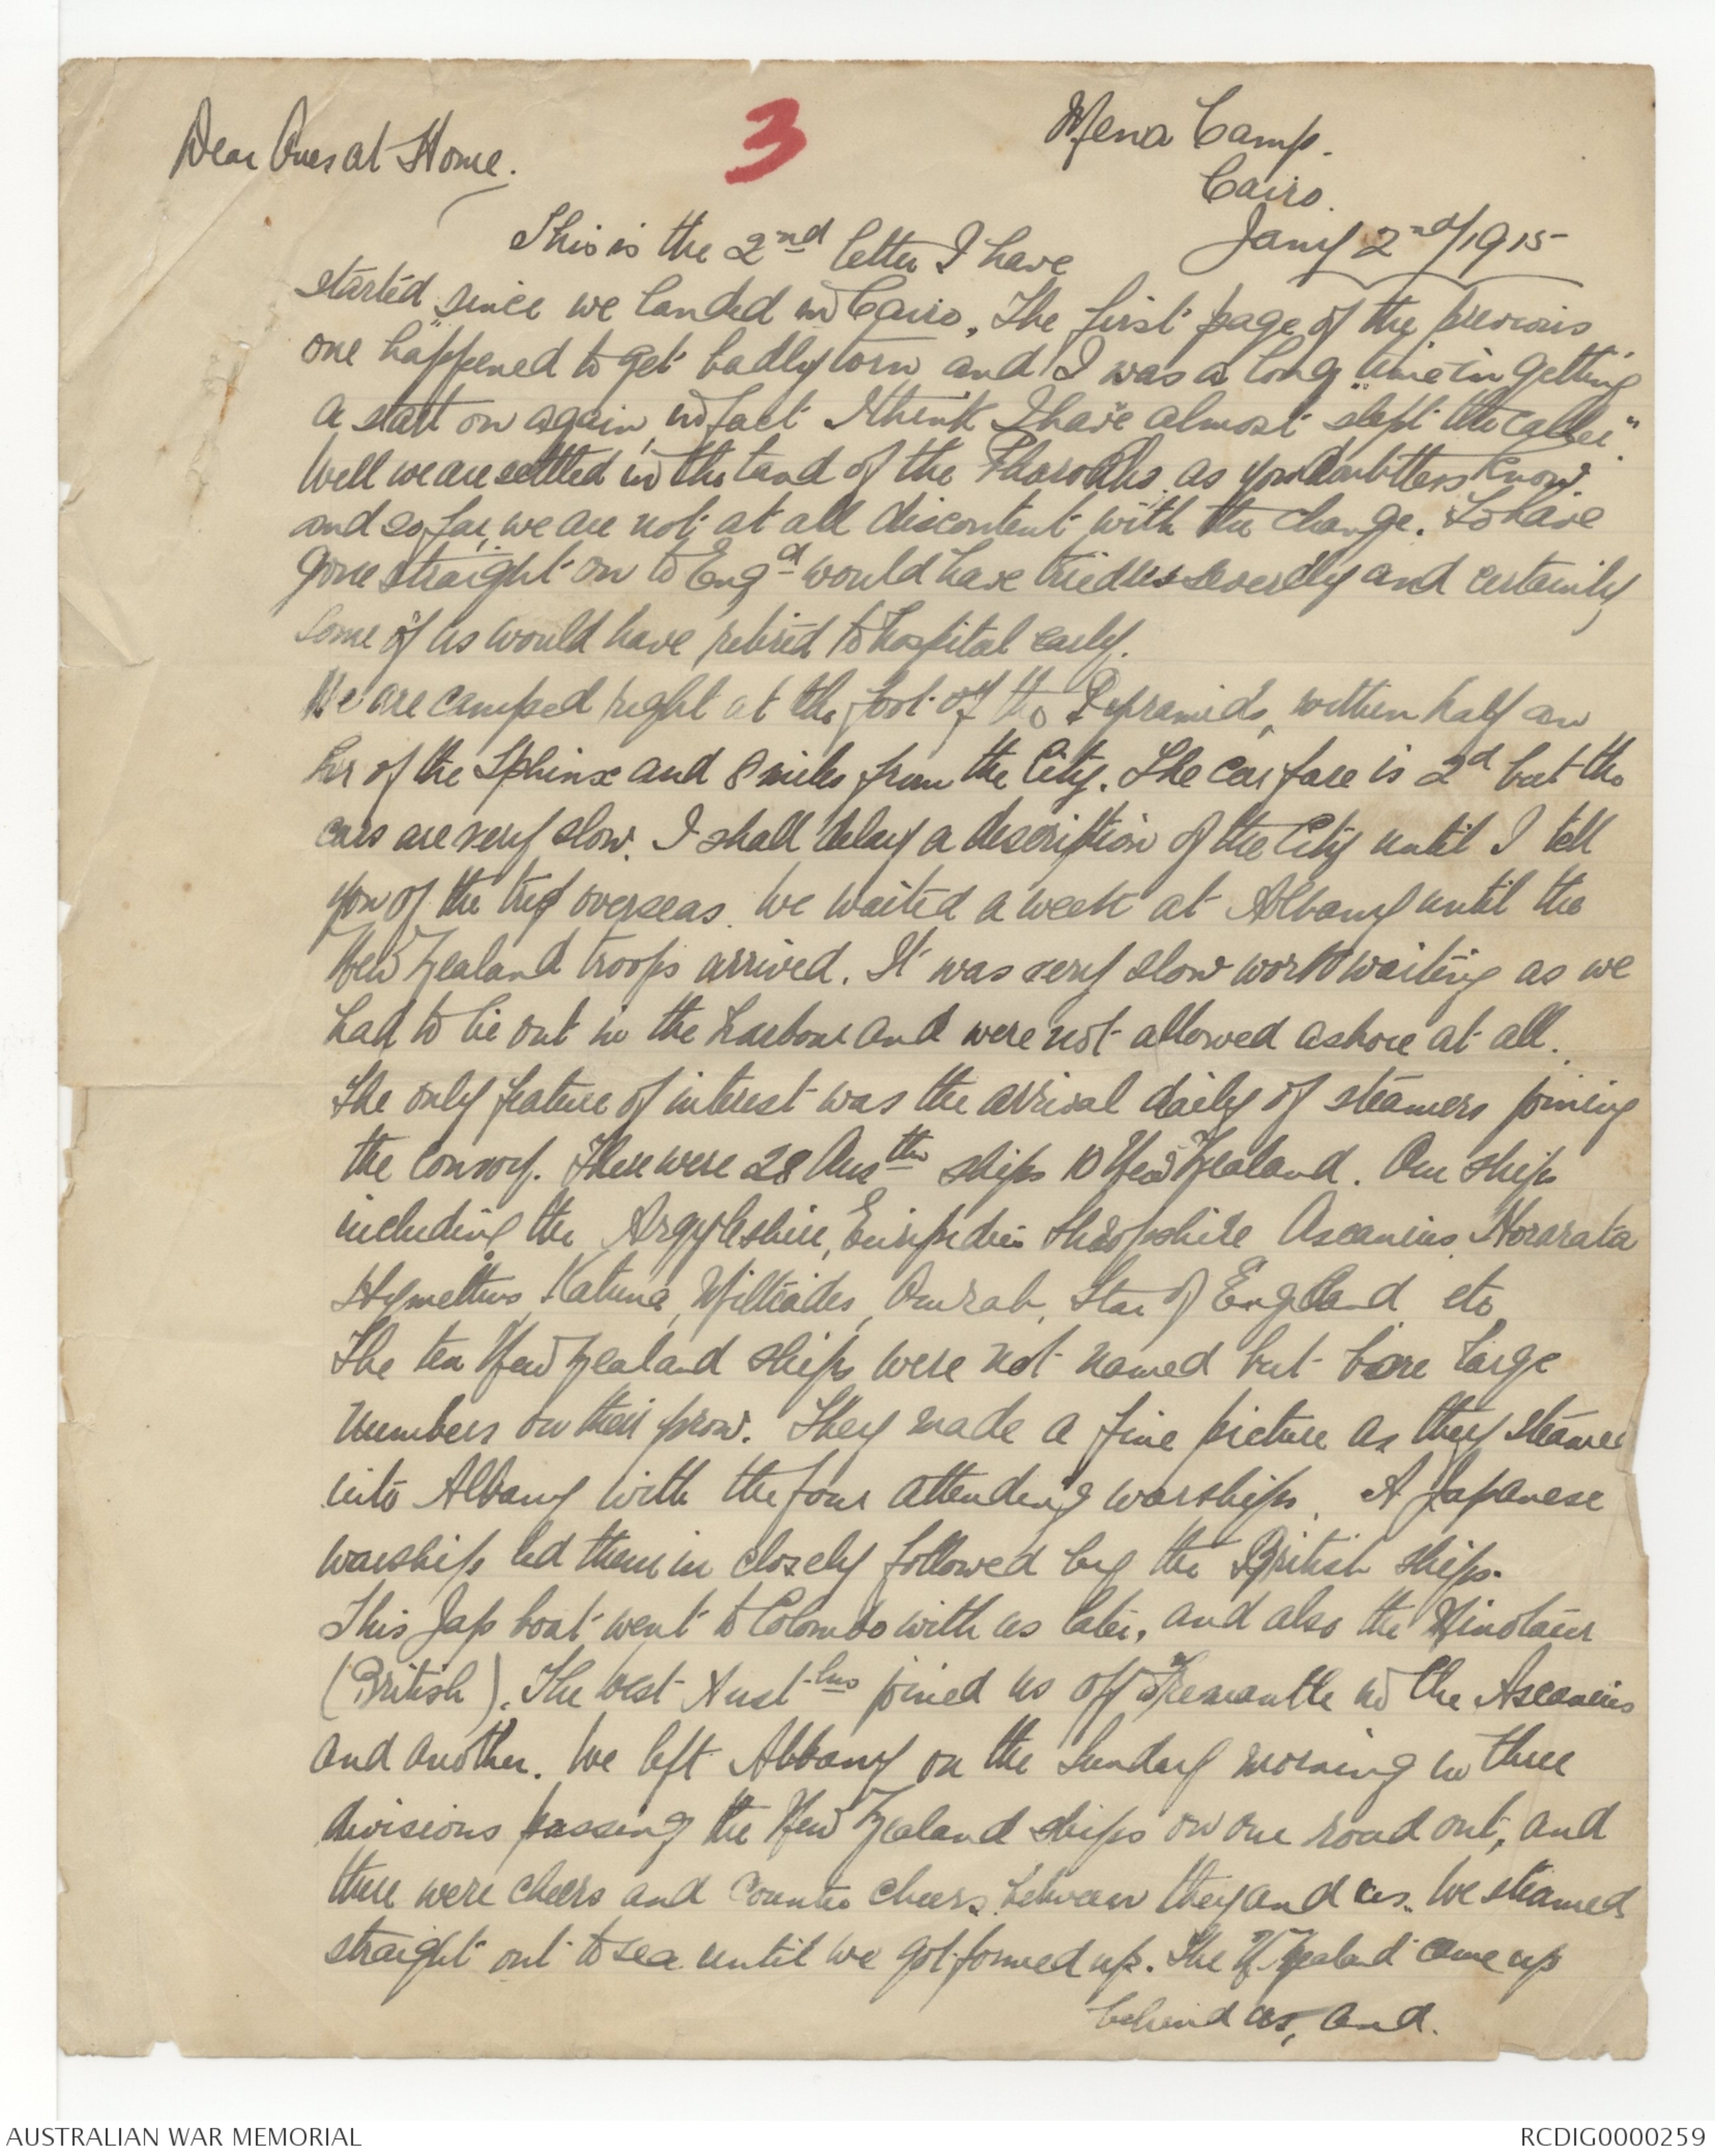 3
Mena Camp.
Cairo.
Jany 2nd/1915
Dear Ones at Home.
This is the 2nd letter I have
started since we landed in Cairo. The first page of the previous
one happened to get badly torn and I was a long time in getting
a start on again, in fact I think I have almost "slept the caller".
Well we are settled in the land of the Pharoahs as you doubtless know
and so far, we are not at all discontent with the change. To have
gone straight on to Engd would have tried us severely and certainly
some of us would have retired to hospital early.
We are camped right at the foot of the Pyramids, within half an
hr of the Sphinx and 8 miles from the City. The car fare is 2d but the
cars are very slow. I shall delay a description of the City until I tell
you of the trip overseas. We waited a week at Albany until the
New Zealand troops arrived. It was very slow work waiting as we
had to lie out in the harbour and were not allowed ashore at all.
The only feature of interest was the arrival daily of steamers joining
the convoy. There were 28 Aus ships 10 New Zealand. Our ships
including the Argyleshire, Euripides Shropshire Ascanius Hororata
Hymettus, Katuna, Miltiades, Omrah, Star of England etc
The ten New Zealand ships were not named but bore large
numbers on their prow. They made a fine picture as they steamed
into Albany with the four attending warships. A Japanese
warship led them in closely followed by the British ships.
This Jap boat went to Colombo with us later, and also the Minotaur
(British). The West Austlns joined us off Fremantle in the Ascanius
and another. We left Albany on the Sunday morning in three
divisions passing the New Zealand ships on our road out, and
there were cheers and counter cheers between they and us. We steamed
straight out to sea until we got formed up. The N Zealand came up
behind us, and.
AUSTRALIAN WAR MEMORIAL
RCDIG0000259